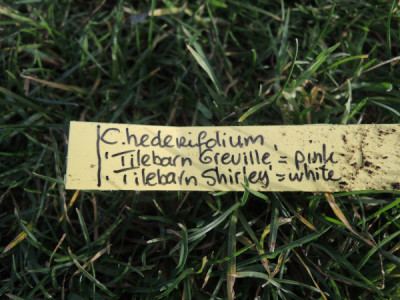 C. hederifolium
'Tilebarn Greville' = pink
'Tilebarn Shirley' = white